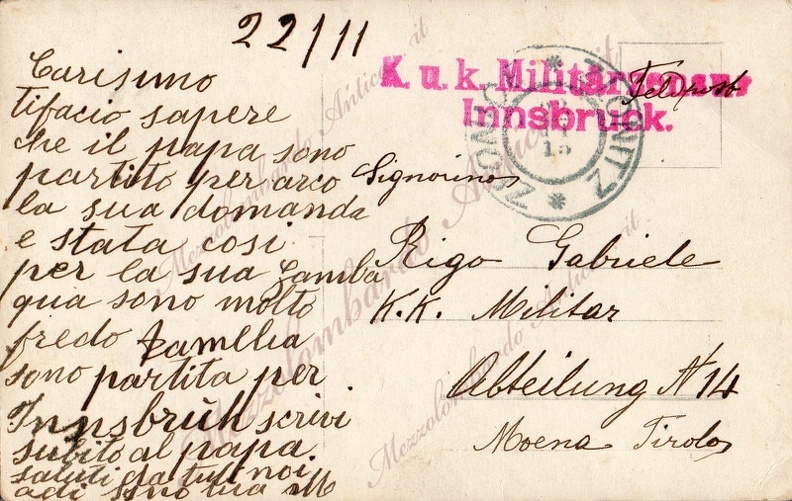 22/11
Carisimo
tifacio sapere
che il papa sono
partito per arco
la sua domanda
e stata cosi
per la sua gamba
qua sono molto
fredo famelia
sono partita per
Innsbrüh scrivi
subito al papa
saluti da tutt noi
adi sono tua M
K. u. k. Militärzensur
Innsbruck.
Feldpost
15
Signorino
Rigo Gabriele
K.K. Militar
Abteilung N 14
Moena Tirolo
Mezzolombardo Antichità.it